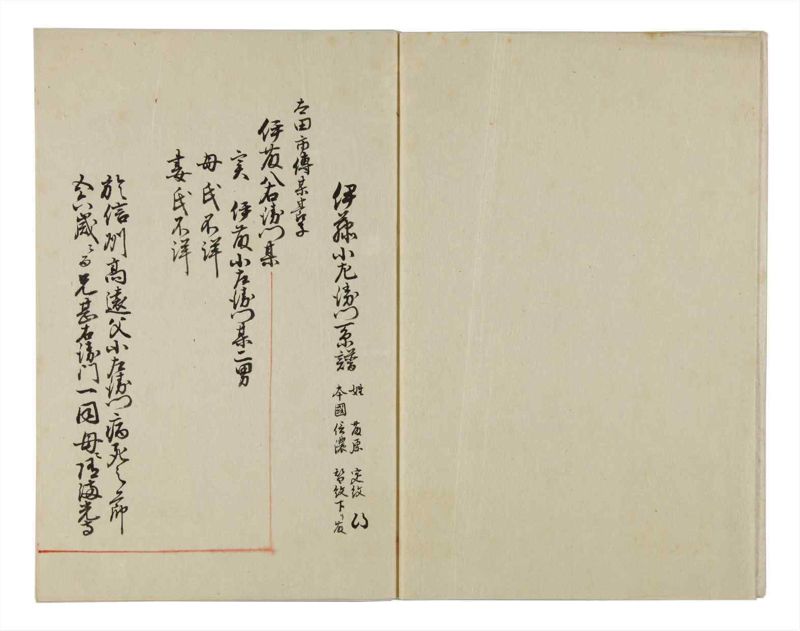 伊藤小左衛門系譜
姓 藤原 定紋
本國信濃 替紋下り藤
太田市傳某養子
伊藤八右衛門某
実 伊藤小左衛門某二男
母氏不詳
妻氏不詳
於信州高遠父小左衛門病死之節
五六歳ニ而兄甚右衛門一同母ニ随満光寺